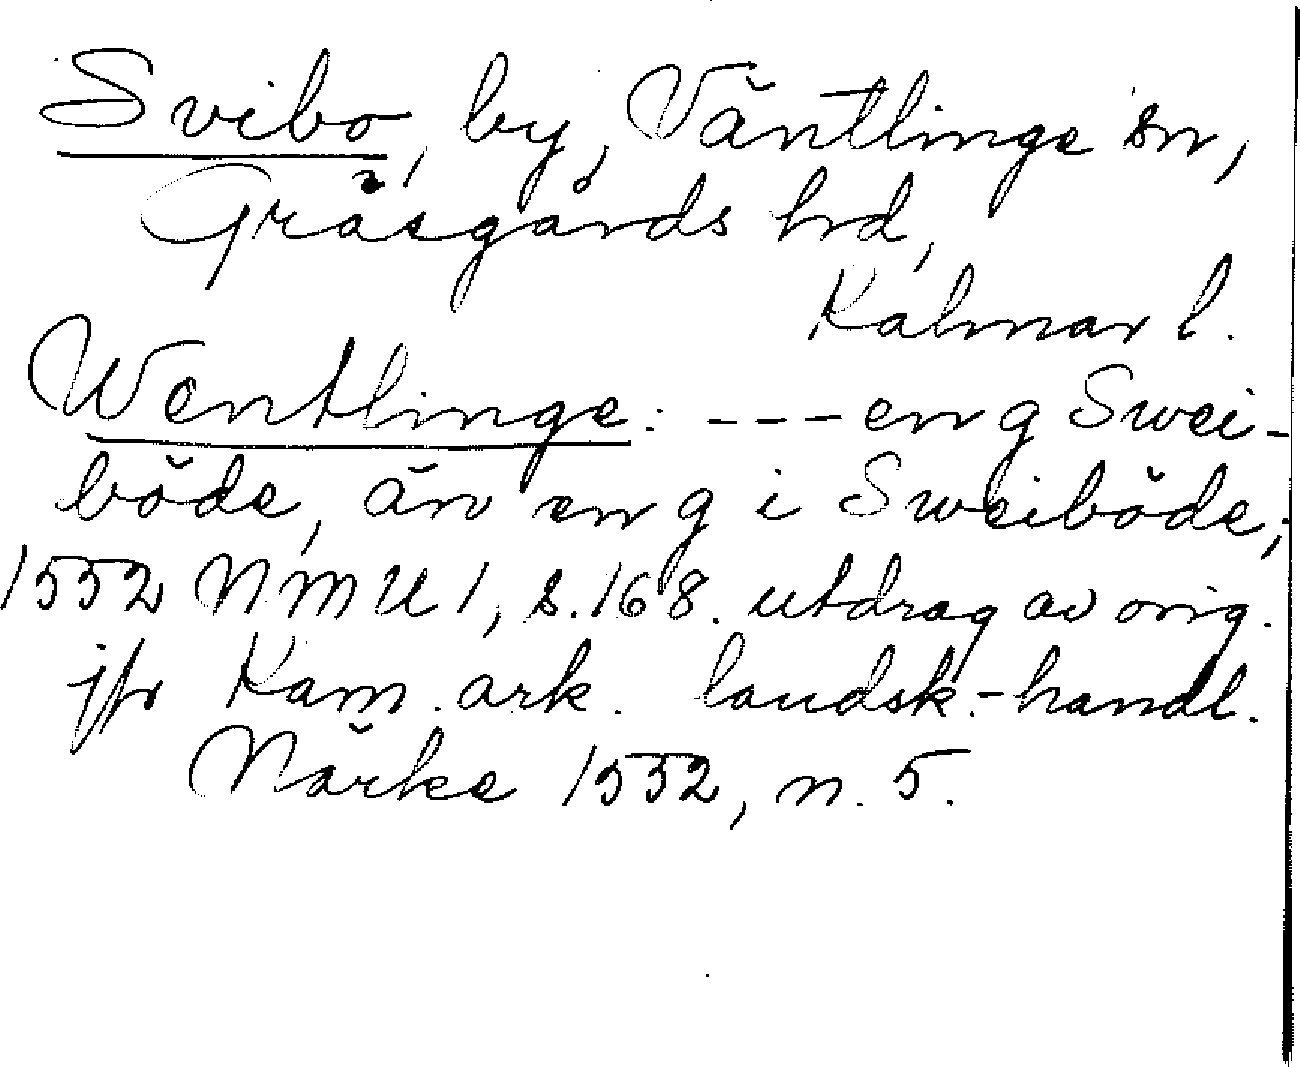 Svibo, by, Väntlinge sn,
Gräsgårds hd,
Kalmar l.
Wentlinge: --- en g Swei-
böde, än en g i Sweiböde;
1552 NMU 1, s. 168. utdrag av orig.
jfr Kam. ark. landsk.-handl.
Närke 1552, n. 5.